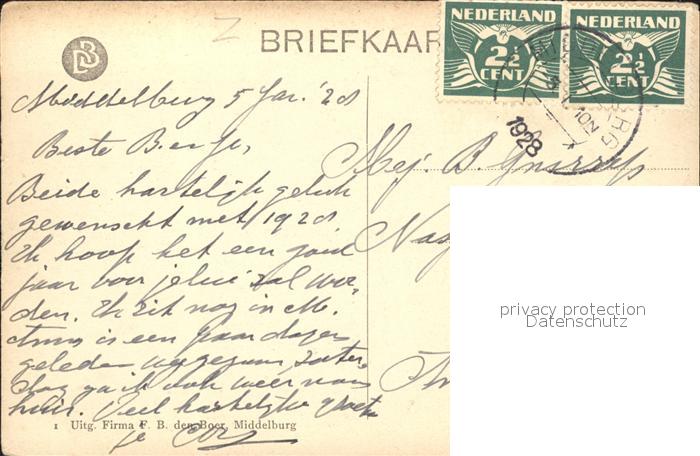 BRIEFKAAR
NEDERLAND
2½
CENT
NEDERLAND
2½
CENT
DB
1928
10N
RG
Middelburg 5 Jan. '28
Beste Bertje,
Beide hartelijk geluk
gewenscht met 1928.
Ik hoop het een goed
jaar voor jelui zal wor-
den. Ik zit nog in M.
is een paar dagen
geleden weggegaan, Zater-
dag ga ik ook weer naar
huis. Veel hartelijke groeten
je Cor
Mej. B.
1 Uitg. Firma F. B. den Boer, Middelburg
privacy protection
Datenschutz